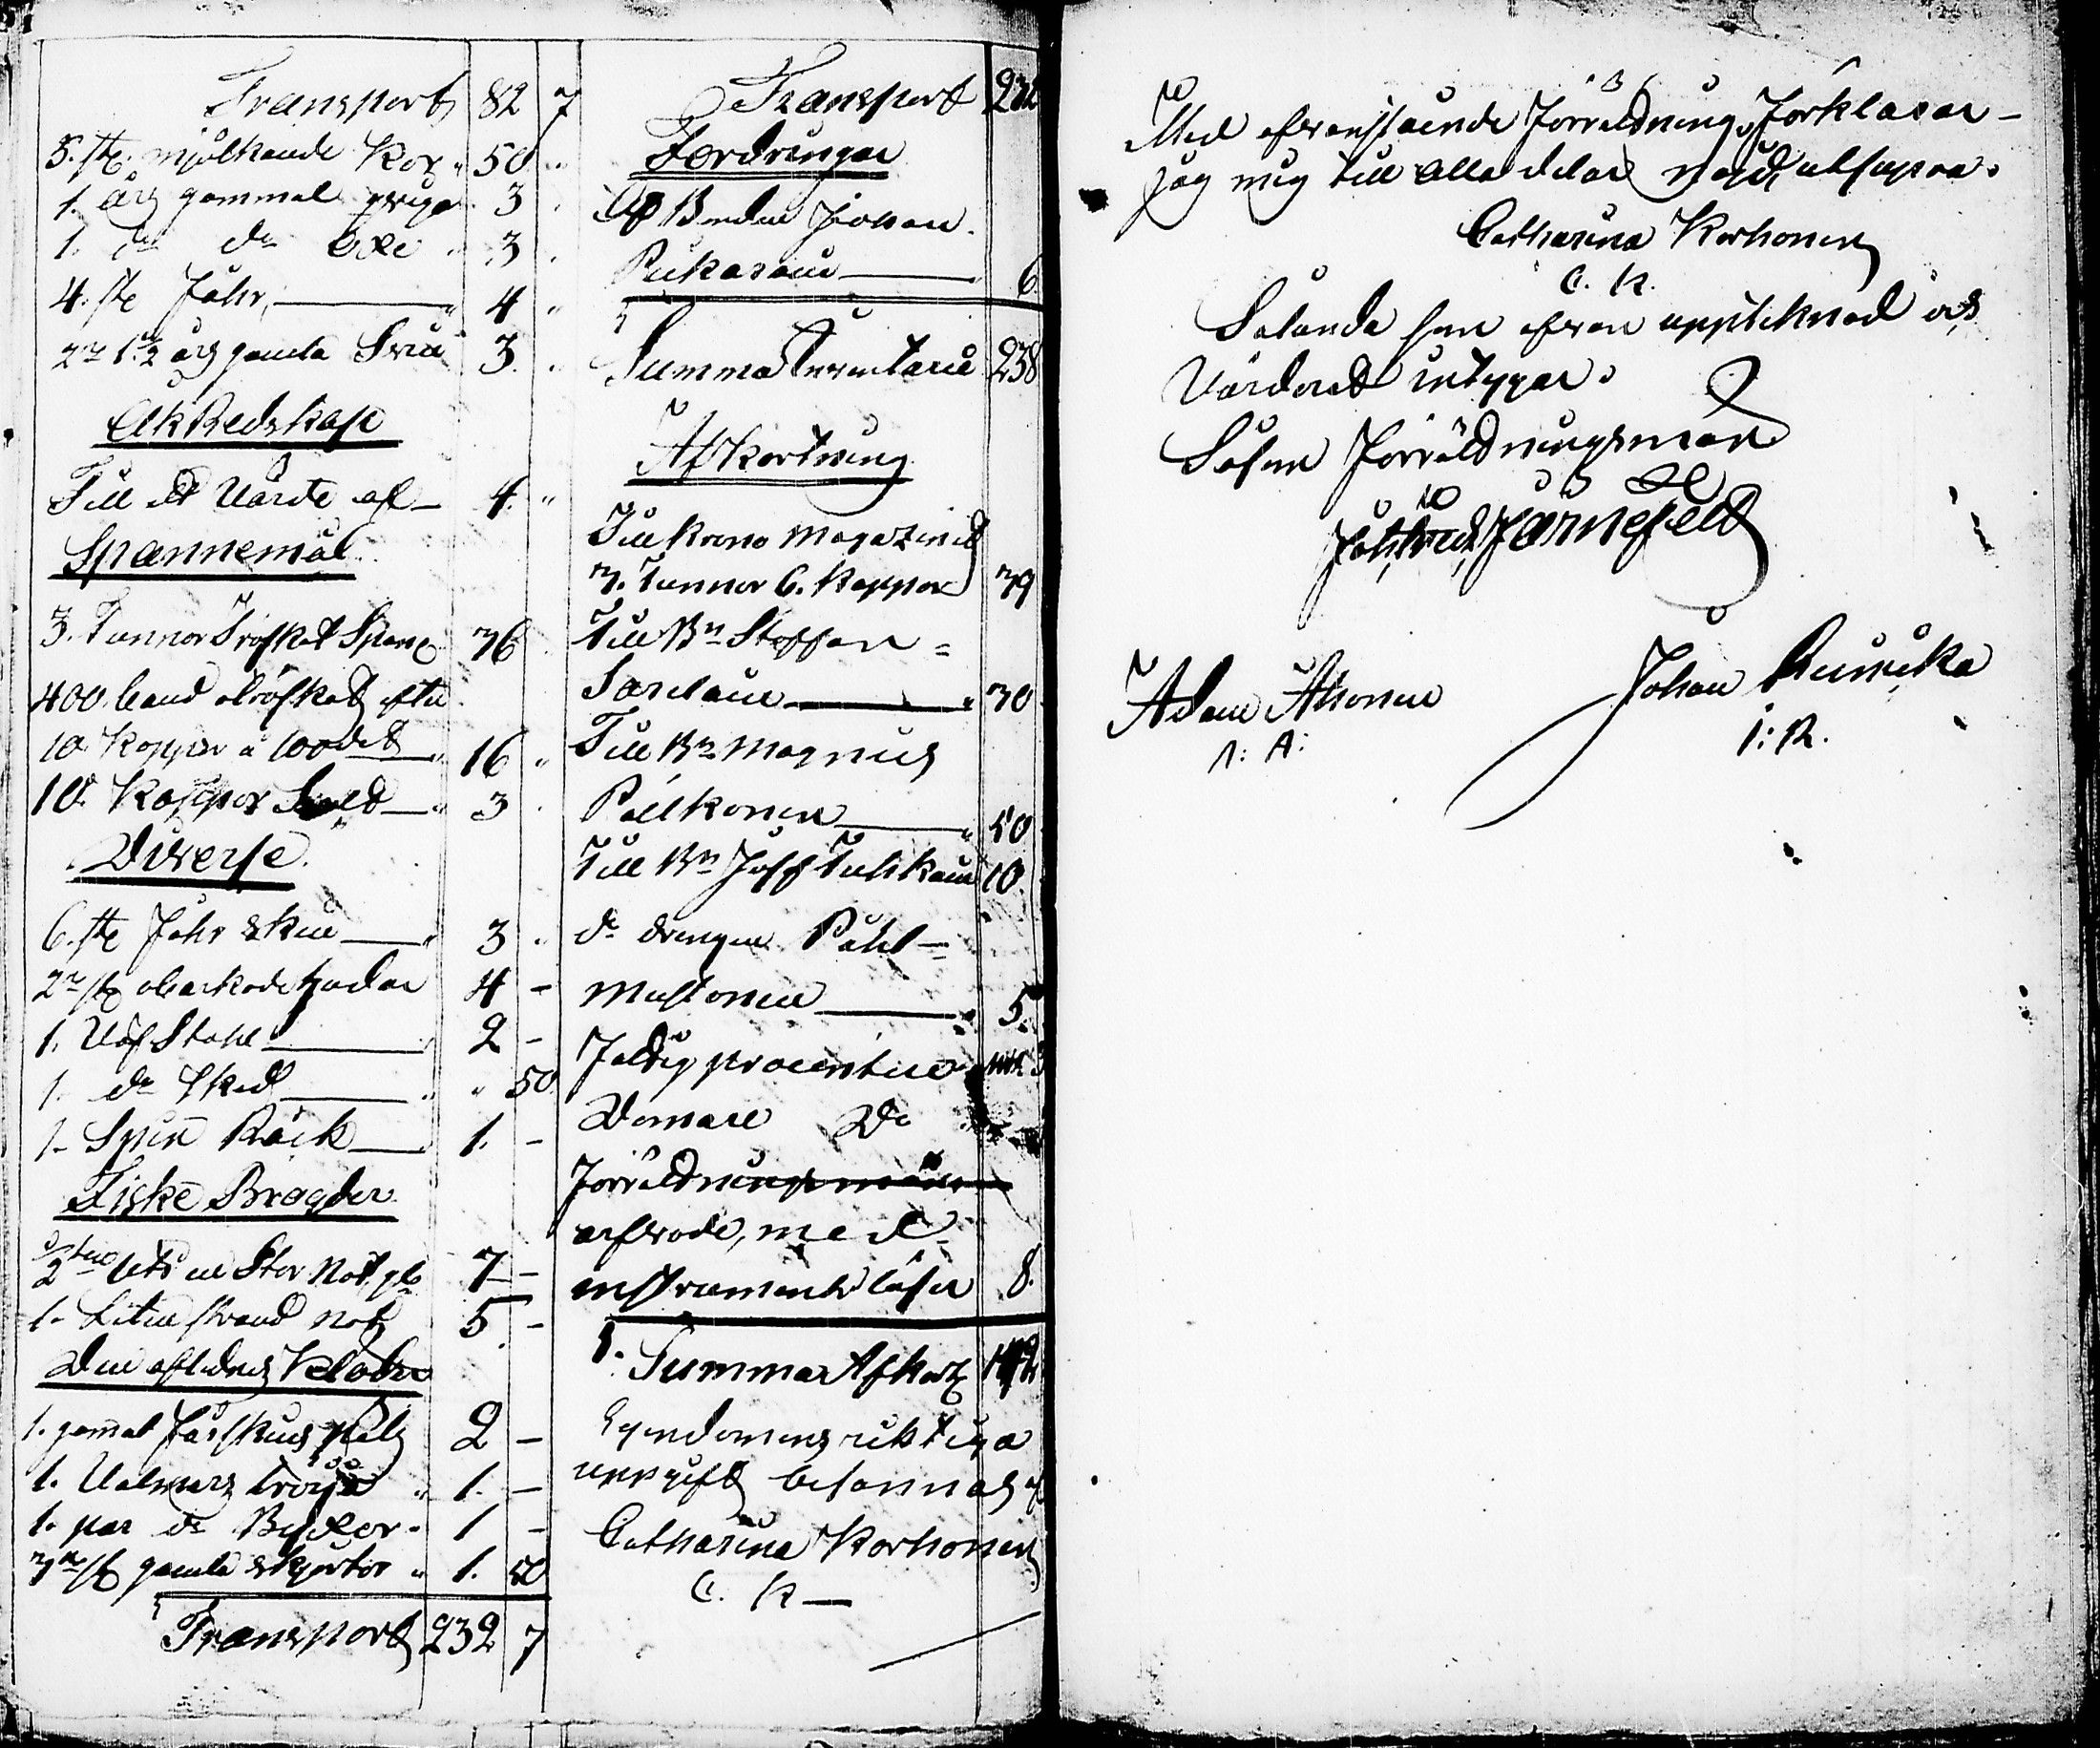 Transport 82 7
5. st. mjölkande Kor " 50 "
1. års gammal qviga 3 "
1. do do Oxe " 3 "
4. st Fåhr, " 4 "
2ne 1/2 års gamla Svin 3. "
Åk Redskap
Till ett Värde af 4. "
Spannemål
3. Tunnor Tröskat Span 36
400. band otröskat efter
10 Kappar a 100det " 16 "
10. Kappor " 3
Diverse.
6. st Fåhr skin " 3 "
2ne st obarkade hudar 4 -
1. Väf Stohl 2 -
1. do Sked " 50.
1. Spin Råck 1. -
Fiske Bragder
uti en Stor Not 7 -
1. Liten strand not 5 -
Den aflednes Kläder
1. gamal Fårskins päls 2 -
1. Valmars tröja " 1. -
1. par do Byxor " 1 -
3ne st gamla skjortor " 1. 50
Transport 232 7
Transport 232
Fordringar
Af Bonden Johan
6.
Summa Inventarie 238
Afkortning
Till Krono Magazinet
3. Tunnor 6. Kappar 39
Till Bn Staffan
30
Till Bn Magnus
Pälkonen " 50
Till Bn 10.
do drengen Påhl
Mustonen 5.
procenten
Domare Do
Förrättningsmäns
arfvode, med
lösen 8.
Summa Afkort
Egendomens riktiga
uppgift besannas af
Catharina Korhonen
C. K
Med ofvanstående Förrättning, Förklarar
jag mig till alla delar nöjd, utsupra.
Catharina Korhonen
C. K.
Sålunda som ofvan upptecknad och
Värderat intygar.
Såsom Förrättningsman
Joh Fredr Järnefelt
Adam Ahonen
A: A:
Johan Ruuska
I: R.